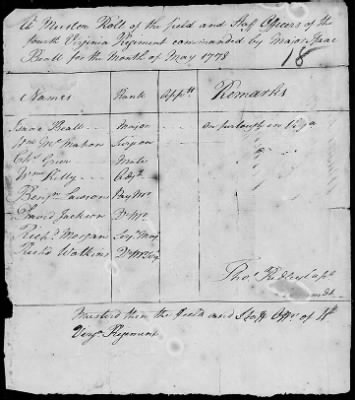 A Muster Roll of the field and Staff Officers of the
fourth Virginia Regiment commanded by Major Isaac
Beall for the Month of May 1778
18
Names Rank App.tt Remarks
Isaac Beall Major On furlough in Virg.a
Wm McMahon Surgon
Chs Greer Mate
Wm Kelly Adjt
Benjn Lawson Pay Mr
David Jackson Dr Mr
Richd Morgan Serjt Majr
Richd Watkins
Thos
Musterd then the field and Staff Offrs of 4th
Virga Regiment